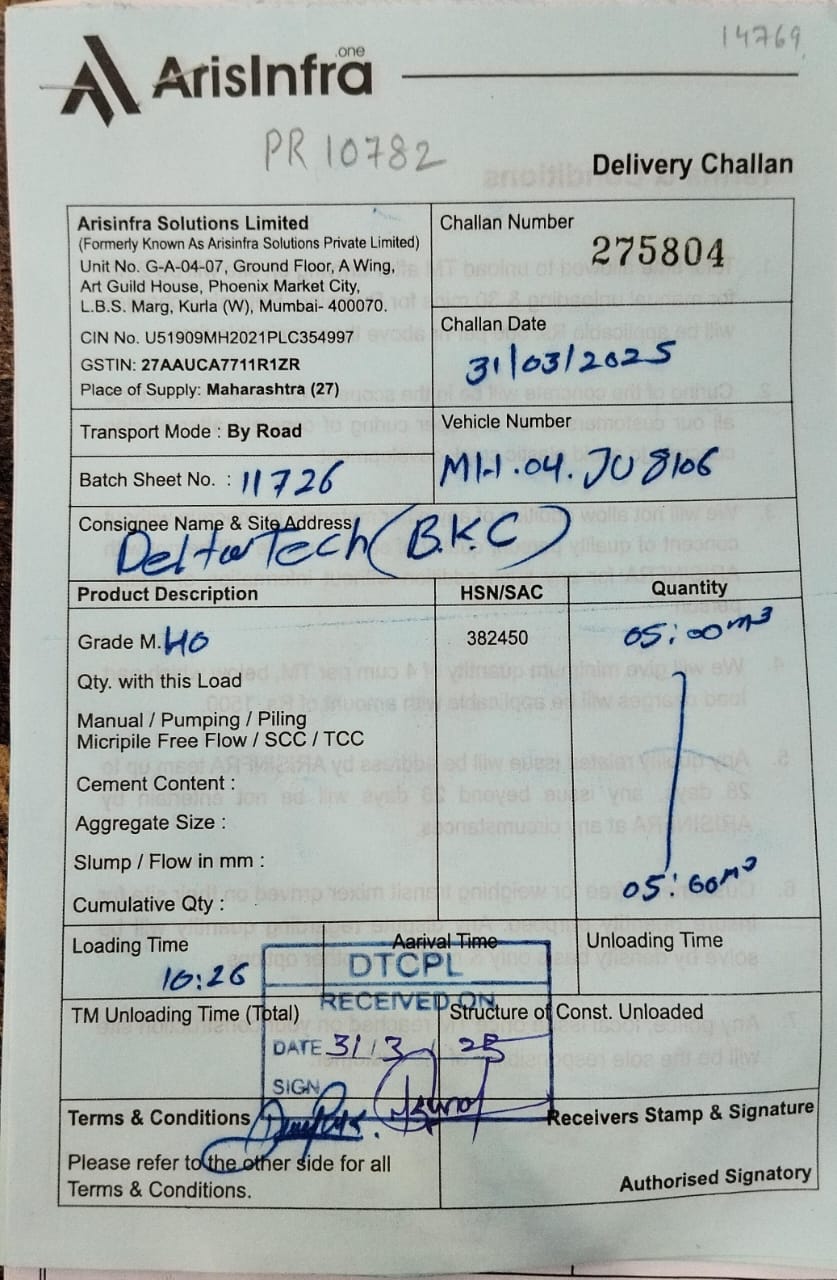 14769
.one
ArisInfra
PR 10782
Delivery Challan
Arisinfra Solutions Limited
(Formerly Known As Arisinfra Solutions Private Limited)
Unit No. G-A-04-07, Ground Floor, A Wing,
Art Guild House, Phoenix Market City,
L.B.S. Marg, Kurla (W), Mumbai- 400070.
CIN No. U51909MH2021PLC354997
GSTIN: 27AAUCA7711R1ZR
Place of Supply: Maharashtra (27)
Challan Number
275804
Challan Date
31/03/2025
Transport Mode : By Road
Vehicle Number
MH.04.JU 8106
Batch Sheet No. : 11726
Consignee Name & Site Address
DeltaTech (B.K.C)
Product Description HSN/SAC Quantity
Grade M.40 382450 05:00m3
Qty. with this Load
Manual / Pumping / Piling
Micripile Free Flow / SCC / TCC
Cement Content :
Aggregate Size :
Slump / Flow in mm :
Cumulative Qty : 05:00m3
Loading Time Aarival Time Unloading Time
10:26
DTCPL
RECEIVED ON
TM Unloading Time (Total) Structure of Const. Unloaded
DATE 31/3/25
SIGN
Terms & Conditions Receivers Stamp & Signature
Please refer to the other side for all
Terms & Conditions.
Authorised Signatory